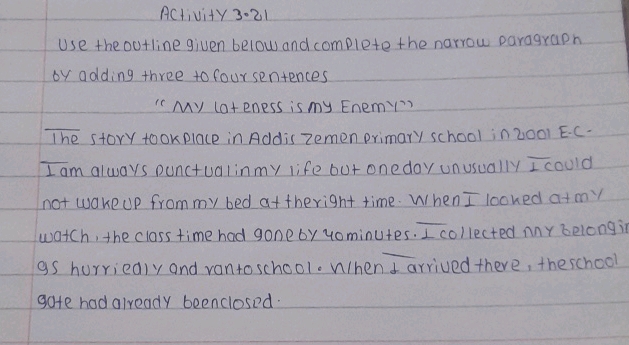 Activity 3.21
Use the outline given below and complete the narrow paragraph
by adding three to four sentences
"My lateness is my Enemy"
The story took place in Addis zemen primary school in 2001 E.C.
I am always punctual in my life but one day unusually I could
not wake up from my bed at the right time. When I looked at my
watch, the class time had gone by 40 minutes. I collected my belongin
gs hurriedly and ran to school. When I arrived there, the school
gate had already been closed.